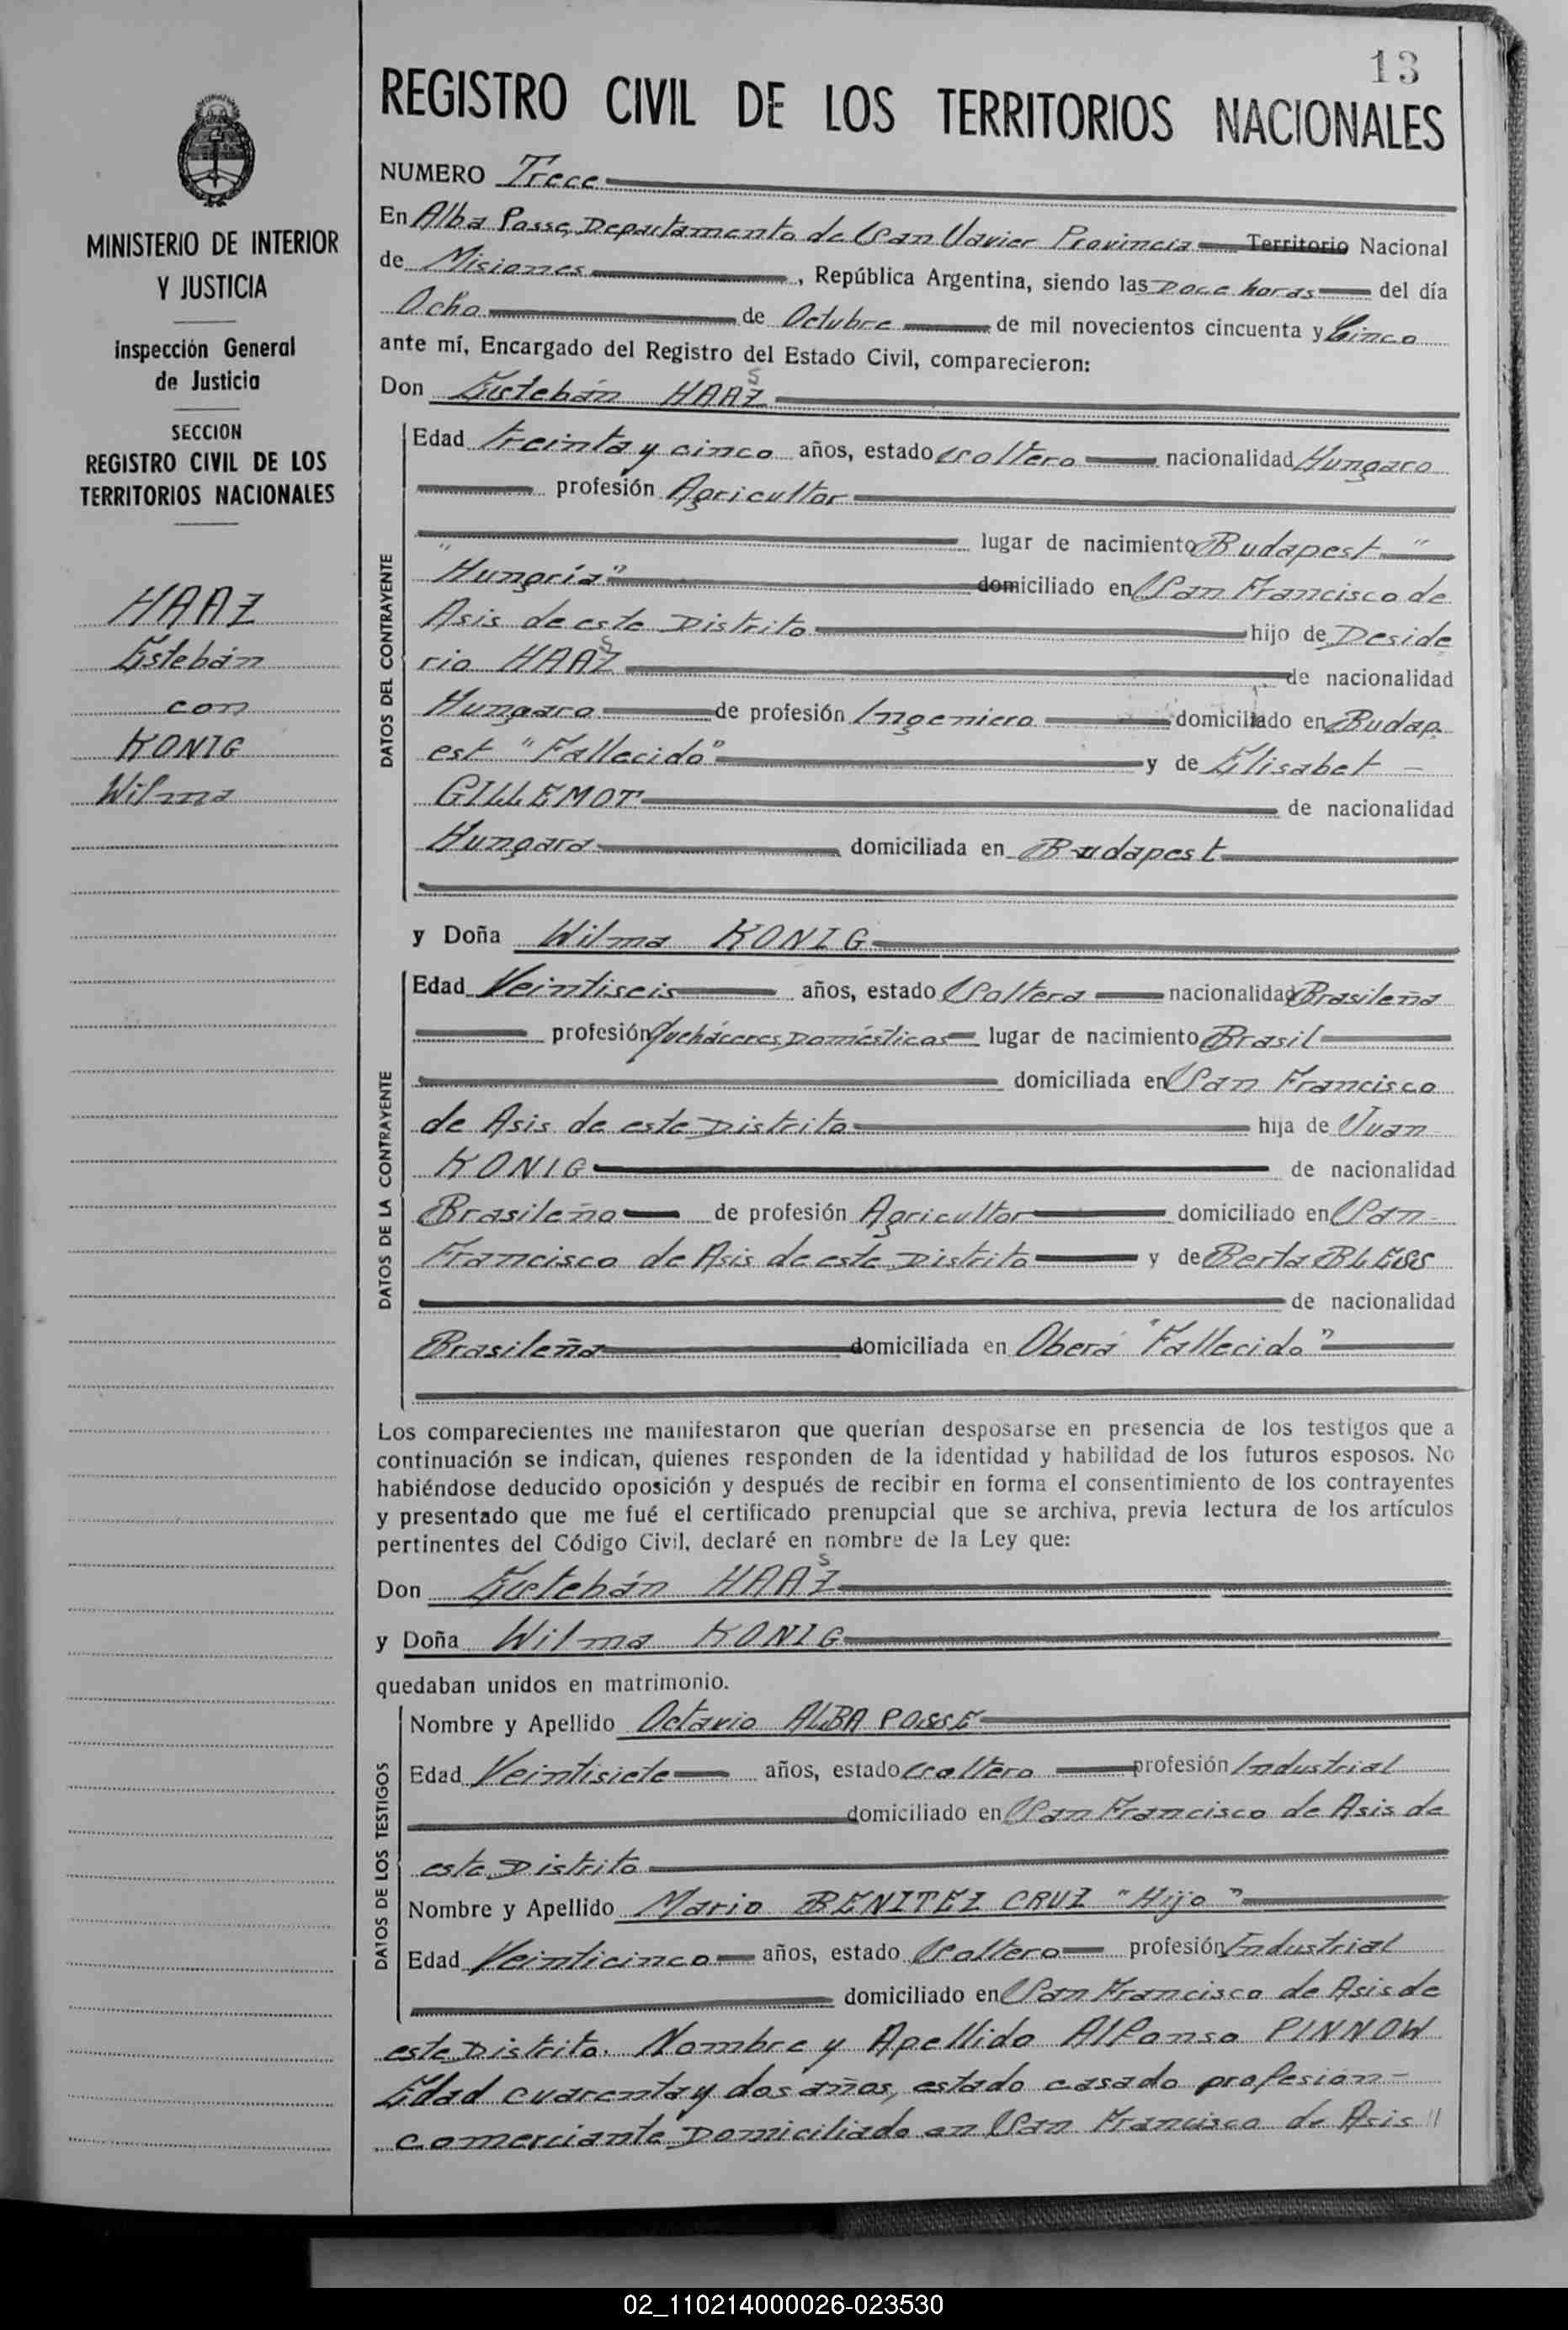 13
REGISTRO CIVIL DE LOS TERRITORIOS NACIONALES
MINISTERIO DE INTERIOR
Y JUSTICIA
Inspección General
de Justicia
SECCION
REGISTRO CIVIL DE LOS
TERRITORIOS NACIONALES
HAAZ
Estebán
con
KONIG
Wilma
NUMERO Trece
En Alba Posse, Departamento de San Javier Provincia Territorio Nacional
de Misiones, República Argentina, siendo las Doce horas del día
Ocho de Octubre de mil novecientos cincuenta y Cinco
ante mí, Encargado del Registro del Estado Civil, comparecieron:
s
Don Estebán HAAZ
DATOS DEL CONTRAYENTE
Edad treinta y cinco años, estado soltero nacionalidad Hungaro
profesión Agricultor
lugar de nacimiento Budapest "
"Hungría" domiciliado en San Francisco de
Asis de este Distrito hijo de Deside
s
rio HAAZ de nacionalidad
Hungaro de profesión Ingeniero domiciliado en Budap.
est "Fallecido" y de Elisabet –
GILLEMOT de nacionalidad
Hungara domiciliada en Budapest
y Doña Wilma KONIG
DATOS DE LA CONTRAYENTE
Edad Veintiseis años, estado Soltera nacionalidad Brasileña
profesión Quehàceres Domésticos lugar de nacimiento Brasil
domiciliada en San Francisco
de Asis de este Distrito hija de Juan
KONIG de nacionalidad
Brasileño de profesión Agricultor domiciliado en San
Francisco de Asis de este Distrito y de Berta BLESS
de nacionalidad
Brasileña domiciliada en Oberá "Fallecido"
Los comparecientes me manifestaron que querían desposarse en presencia de los testigos que a
continuación se indican, quienes responden de la identidad y habilidad de los futuros esposos. No
habiéndose deducido oposición y después de recibir en forma el consentimiento de los contrayentes
y presentado que me fué el certificado prenupcial que se archiva, previa lectura de los artículos
pertinentes del Código Civil, declaré en nombre de la Ley que:
s
Don Estebán HAAZ
y Doña Wilma KONIG
quedaban unidos en matrimonio.
DATOS DE LOS TESTIGOS
Nombre y Apellido Octavio ALBA POSSE
Edad Veintisiete años, estado soltero profesión Industrial
domiciliado en San Francisco de Asis de
este Distrito
Nombre y Apellido Mario BENITEZ CRUZ "Hijo"
Edad Veinticinco años, estado Soltero profesión Industrial
domiciliado en San Francisco de Asis de
este Distrito. Nombre y Apellido Alfonso PINNOW
Edad cuarenta y dos años, estado casado profesión –
comerciante Domiciliado en San Francisco de Asis "
02_110214000026-023530